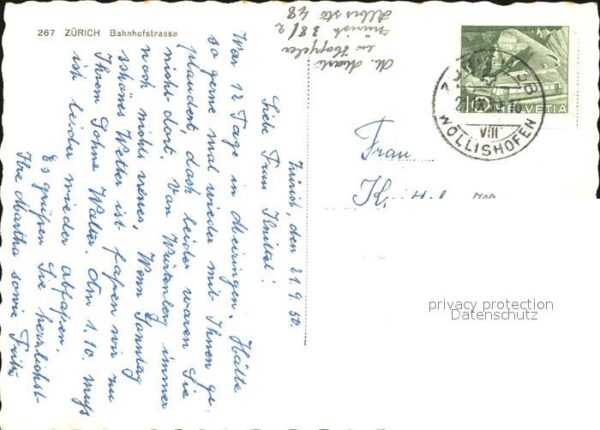 267 ZÜRICH Bahnhofstrasse
Zürich, den 21.9.50.
Liebe Frau
War 12 Tage in Meiringen. Hätte
so gerne mal wieder mit Ihnen ge-
plaudert, doch leider waren Sie
nicht dort. Von Würtenberg immer
noch nichts neues. Wenn Sonntag
schönes Wetter ist fahren wir zu
Ihrem Sohne Walter. Am 1.10. muß
ich leider wieder abfahren.
Es grüßen Sie herzlichst
Ihre Martha sowie Fritz
Zürich 38/2
Albisstr 48
ZÜRICH 38
21.IX.50.-10
VIII
WOLLISHOFEN
HELVETIA
Frau
privacy protection
Datenschutz